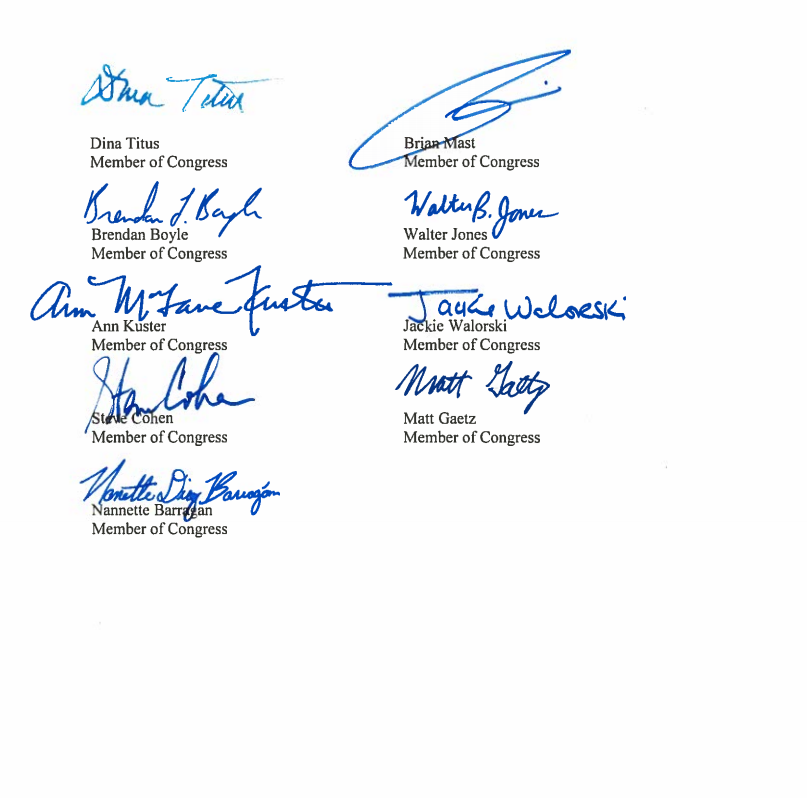 Dina Titus
Dina Titus
Member of Congress
Brian Mast
Member of Congress
Brendan F. Boyle
Brendan Boyle
Member of Congress
Walter B. Jones
Walter Jones
Member of Congress
Ann McLane Kuster
Ann Kuster
Member of Congress
Jackie Walorski
Jackie Walorski
Member of Congress
Steve Cohen
Steve Cohen
Member of Congress
Matt Gaetz
Matt Gaetz
Member of Congress
Nanette Diaz Barragán
Nannette Barragan
Member of Congress